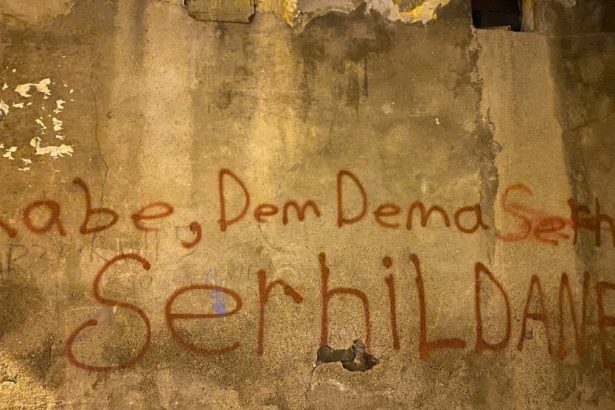 abe, Dem Dema Serh
SerhiLDANE